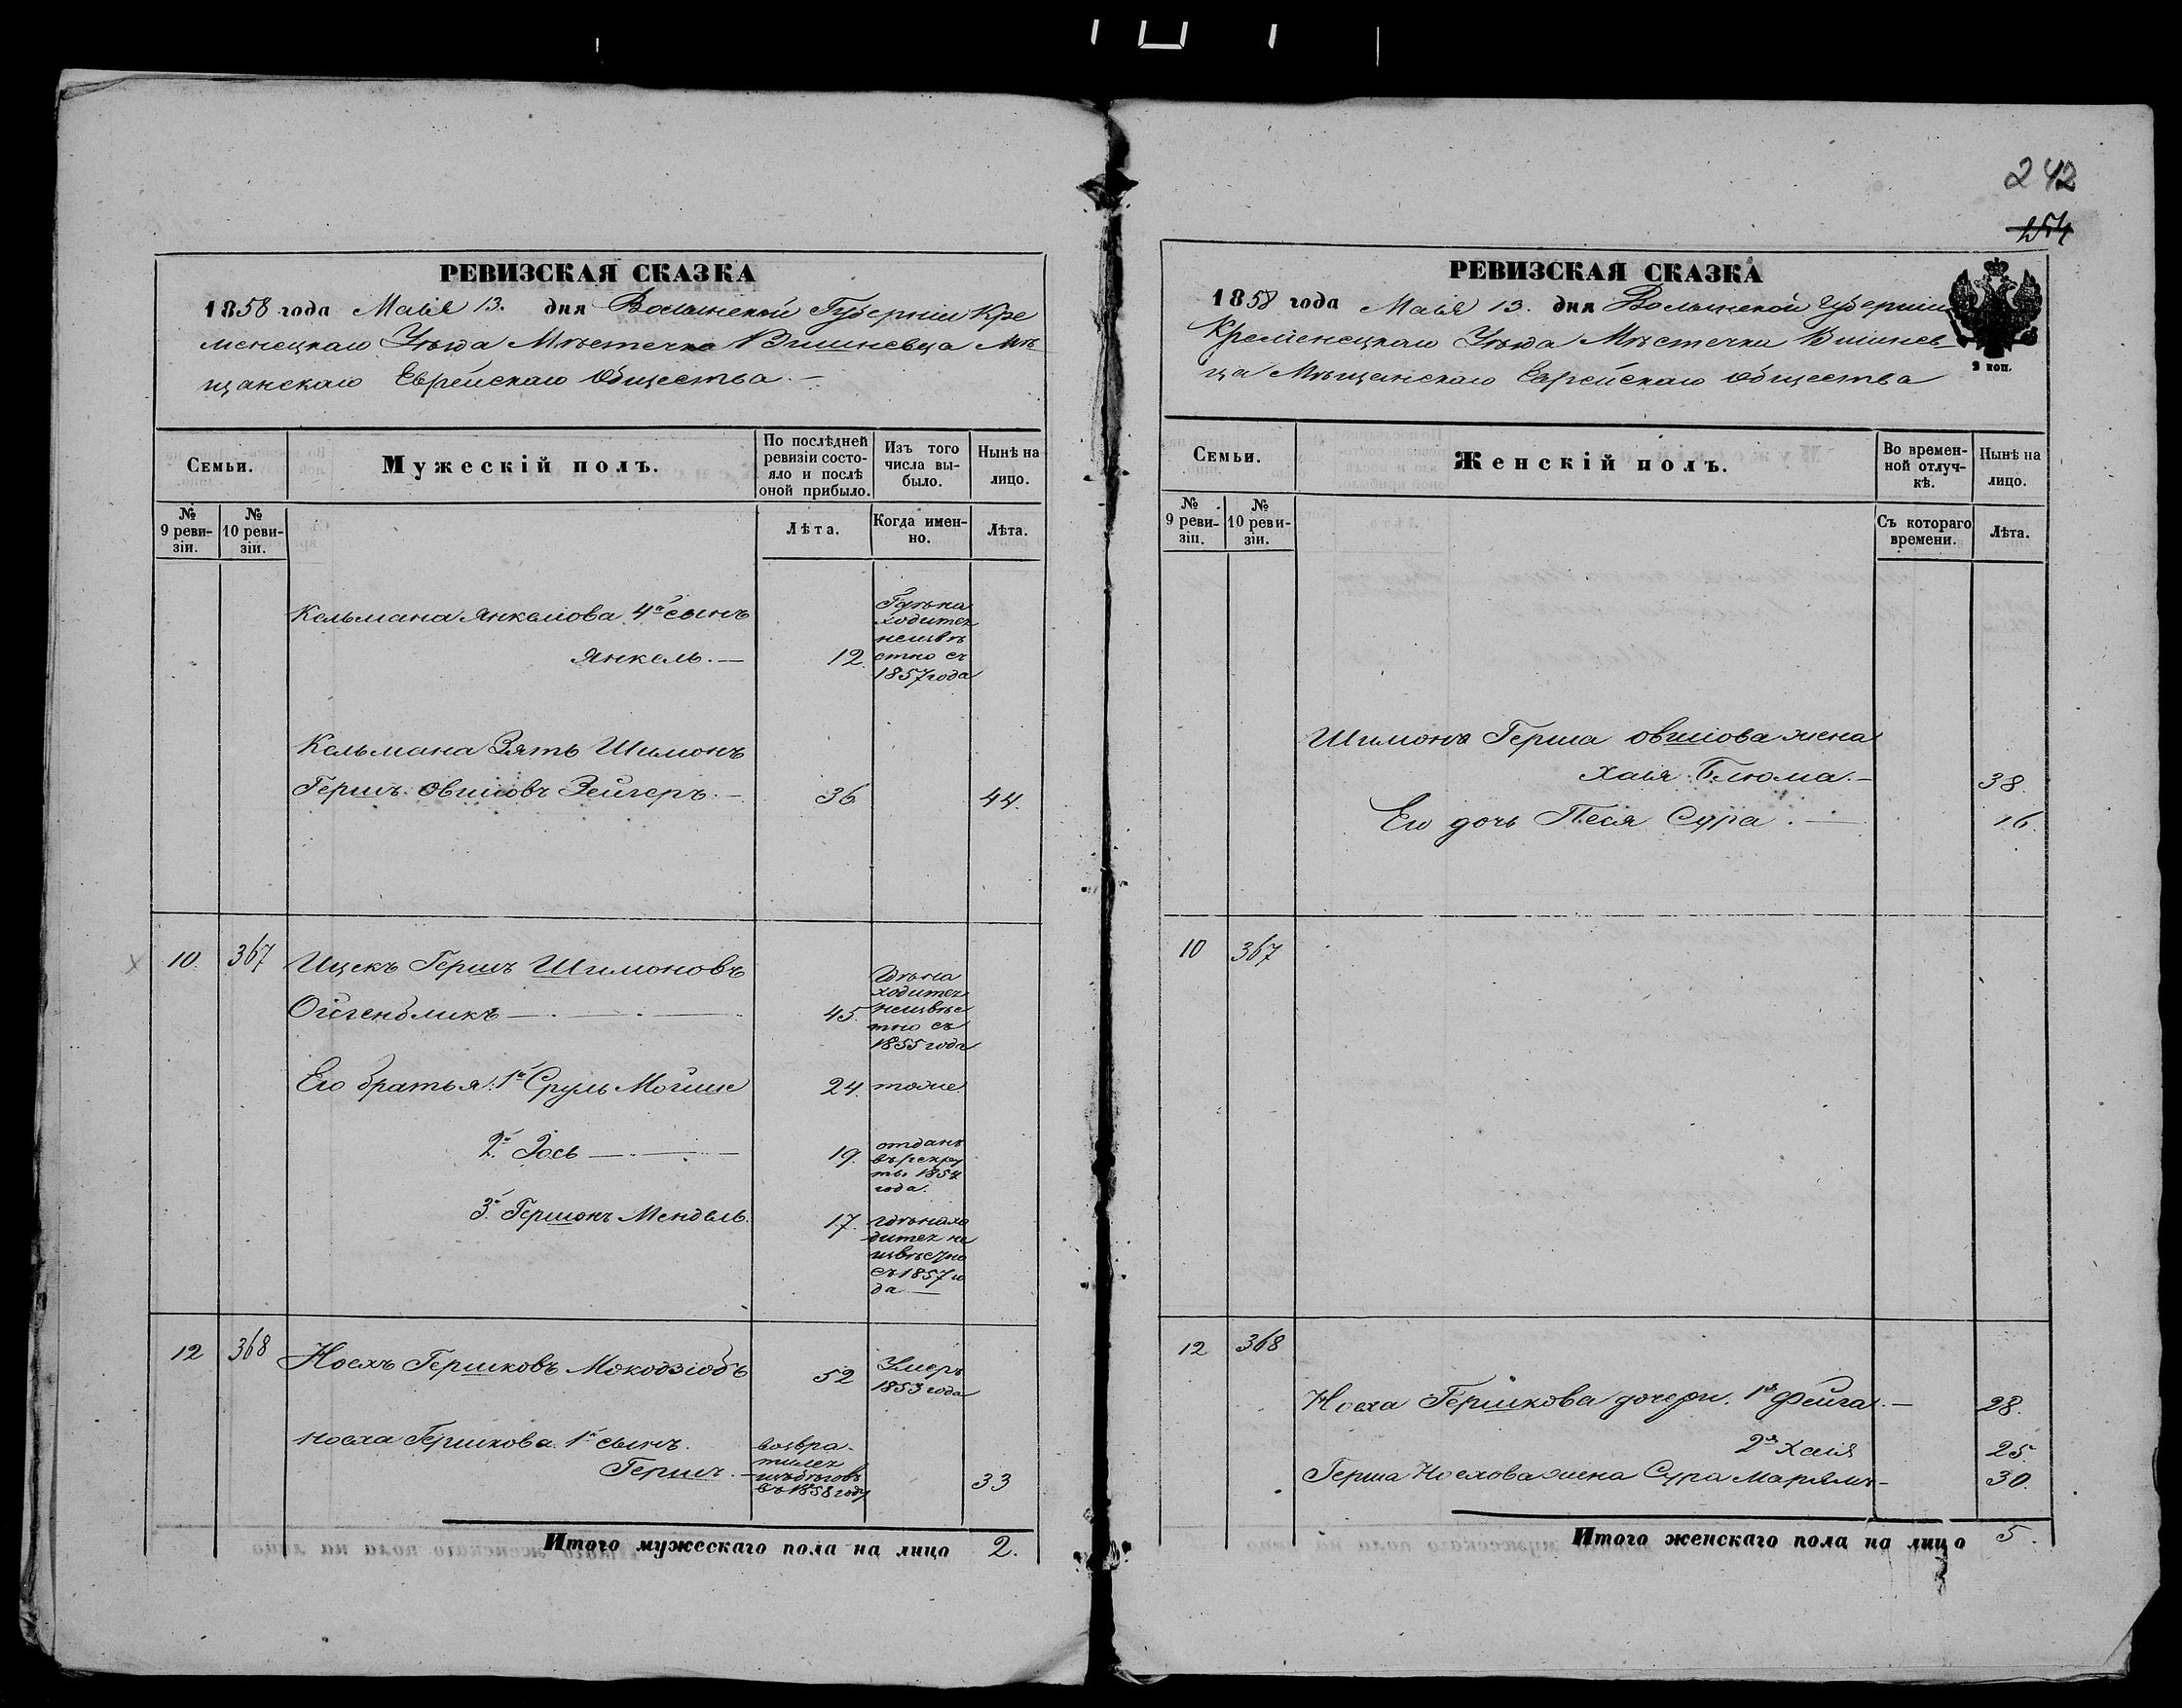 242
254
РЕВИЗСКАЯ СКАЗКА
1858 года Маія 13. дня Волынской Губерніи Кре
менецкаго Уѣзда Мѣстечка Вишневца Мѣ
щанскаго Еврейскаго Общества. —
Семьи.
Мужескій полъ.
По послѣдней
ревизіи состо-
яло и послѣ
оной прибыло.
Изъ того
числа вы-
было.
Нынѣ на
лицо.
№
9 реви-
зіи.
№
10 реви-
зіи.
Лѣта.
Когда имен-
но.
Лѣта.
Кельмана Янкелова 4й сынъ
Янкель. —
12.
Гдѣ на
ходится
неизвѣ
стно съ
1857 года
Кельмана Зять Шимонъ
Гершъ Овшіовъ Зейгеръ. —
36
44.
10. 367
Ицекъ Гершъ Шимоновъ
Ойгенбликъ —
45.
Гдѣ на
ходится
неизвѣс
тно съ
1855 года
Его братья: 1й Сруль Мойше
24. тоже
2й Іось —
19.
отданъ
въ рекру
ты 1854
года.
3й Гершонъ Мендель.
17.
гдѣ нахо
дится не
извѣстно
съ 1857 го
да —
12 368
Носхъ Гершковъ Мокодзіобъ
52
Умеръ
1853 года
Носха Гершкова 1й сынъ.
Гершъ. —
возвра-
тился
изъ бѣговъ
въ 1858 году
33
Итого мужескаго пола на лицо 2.
РЕВИЗСКАЯ СКАЗКА
1858 года Маія 13. дня Волынской Губерніи
Кременецкаго Уѣзда Мѣстечка Вишнев-
ца Мѣщанскаго Еврейскаго Общества
2 коп.
Семьи.
Женскій полъ.
Во времен-
ной отлуч-
кѣ.
Нынѣ на
лицо.
№
9 реви-
зіи.
№
10 реви-
зіи.
Съ котораго
времени.
Лѣта.
Шимона Герша Овшіова жена
Хаія Блюма. —
38.
Его дочь Песя Сура. —
16.
10 367
12 368
Носха Гершкова дочери. 1я Фейга. —
28.
2я Хаія
25.
Герша Носхова жена Сура Марямъ —
30.
Итого женскаго пола на лицо 5.